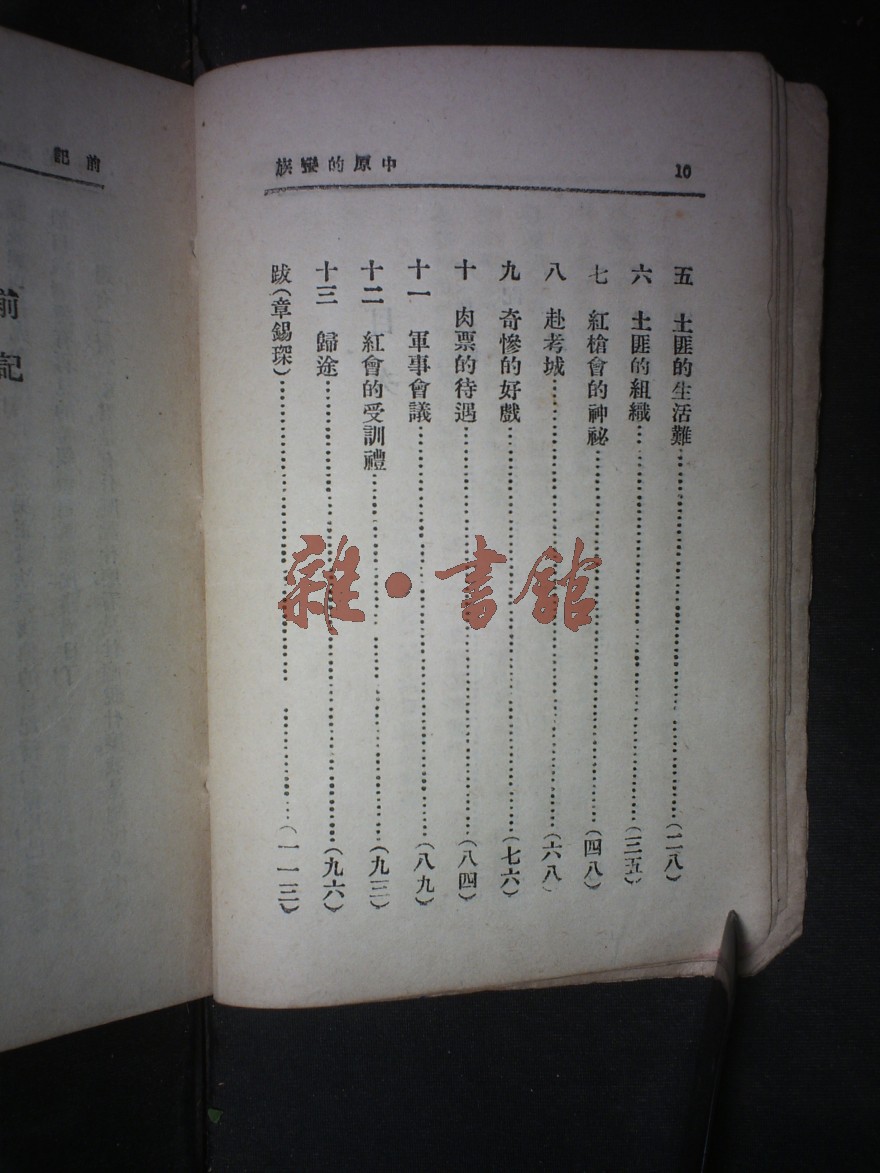 中原的蠻族
10
五　土匪的生活難……(二八)
六　土匪的組織……(三五)
七　紅槍會的神祕……(四八)
八　赴考城……(六八)
九　奇慘的好戲……(七六)
十　肉票的待遇……(八四)
十一　軍事會議……(八九)
十二　紅會的受訓禮……(九三)
十三　歸途……(九六)
跋(章錫琛)……(一一三)
雜·書館
前記
前記